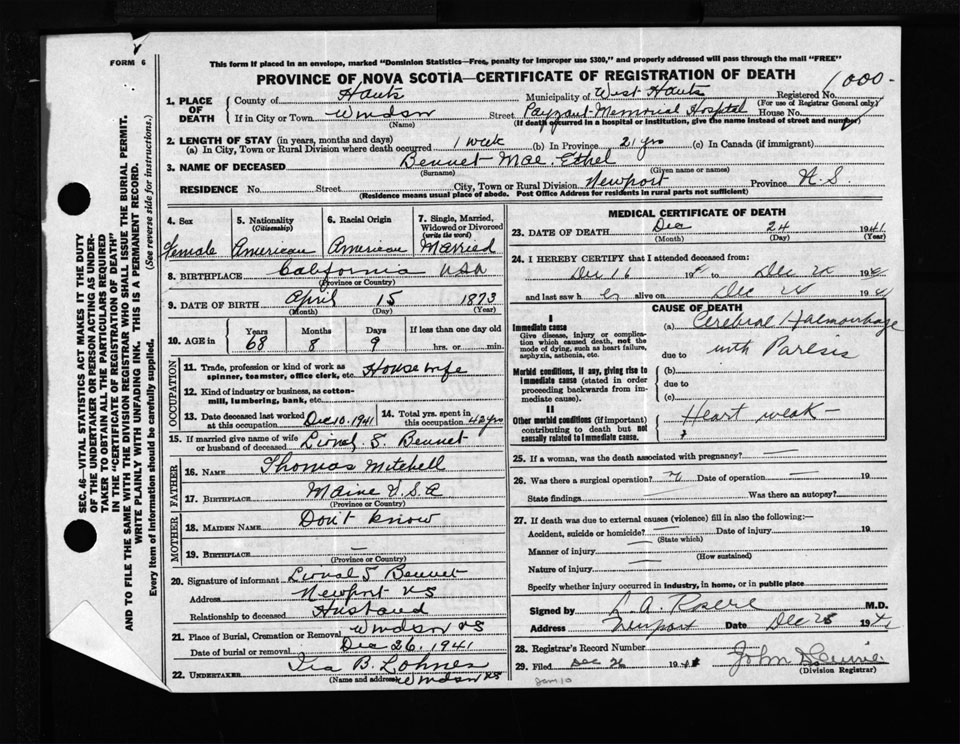 FORM 6
This form if placed in an envelope, marked "Dominion Statistics—Free, penalty for improper use $300," and properly addressed will pass through the mail "FREE"
PROVINCE OF NOVA SCOTIA—CERTIFICATE OF REGISTRATION OF DEATH
1000-
1. PLACE OF DEATH
County of Hants Municipality of West Hants Registered No.
(For use of Registrar General only)
If in City or Town Windsor Street Payzant Memorial Hospital House No.
(Name) (If death occurred in a hospital or institution, give the name instead of street and number)
2. LENGTH OF STAY (in years, months and days)
(a) In City, Town or Rural Division where death occurred 1 week (b) In Province 21 yrs (c) In Canada (if immigrant)
3. NAME OF DECEASED Bennet Mae Ethel
(Surname) (Given name or names)
RESIDENCE No. Street City, Town or Rural Division Newport Province N.S
(Residence means usual place of abode. Post Office Address for residents in rural parts not sufficient)
4. Sex Female
5. Nationality (Citizenship) American
6. Racial Origin American
7. Single, Married, Widowed or Divorced (write the word) Married
8. BIRTHPLACE California USA
(Province or Country)
9. DATE OF BIRTH April 15 1873
(Month) (Day) (Year)
10. AGE in Years Months Days If less than one day old
68 8 9 hrs. or min.
OCCUPATION
11. Trade, profession or kind of work as spinner, teamster, office clerk, etc. Housewife
12. Kind of industry or business, as cotton-mill, lumbering, bank, etc.
13. Date deceased last worked at this occupation Dec 10, 1941 14. Total yrs. spent in this occupation 42 yrs
15. If married give name of wife or husband of deceased Lional S. Bennet
FATHER
16. NAME Thomas Mitchell
17. BIRTHPLACE Maine U.S.A
(Province or Country)
MOTHER
18. MAIDEN NAME Don't know
19. BIRTHPLACE —
(Province or Country)
20. Signature of informant Lional S Bennet
Address Newport NS
Relationship to deceased Husband
21. Place of Burial, Cremation or Removal Windsor NS
Date of burial or removal Dec 26, 1941
22. UNDERTAKER Ira B. Lohnes
(Name and address) Windsor NS
MEDICAL CERTIFICATE OF DEATH
23. DATE OF DEATH Dec 24 1941
(Month) (Day) (Year)
24. I HEREBY CERTIFY that I attended deceased from:
Dec 16 19 to Dec 19
and last saw her alive on Dec 24 19
CAUSE OF DEATH
I
Immediate cause
Give disease, injury or complication which caused death, not the mode of dying, such as heart failure, asphyxia, asthenia, etc.
(a) Cerebral Haemorrhage
due to with Paresis
Morbid conditions, if any, giving rise to immediate cause (stated in order proceeding backwards from immediate cause).
(b)
due to
(c)
II
Other morbid conditions (if important) contributing to death but not causally related to immediate cause.
Heart weak—
25. If a woman, was the death associated with pregnancy? —
26. Was there a surgical operation? Date of operation — 19
State findings Was there an autopsy?
27. If death was due to external causes (violence) fill in also the following:—
Accident, suicide or homicide? — Date of injury — 19
(State which)
Manner of injury —
(How sustained)
Nature of injury —
Specify whether injury occurred in industry, in home, or in public place
Signed by M.D.
Address Newport Date Dec 25 19
28. Registrar's Record Number
29. Filed Dec 26 1941 John
(Division Registrar)
Jan 10
SEC. 46—VITAL STATISTICS ACT MAKES IT THE DUTY
OF THE UNDERTAKER OR PERSON ACTING AS UNDER-
TAKER TO OBTAIN ALL THE PARTICULARS REQUIRED
IN THE "CERTIFICATE OF REGISTRATION OF DEATH"
AND TO FILE THE SAME WITH THE DIVISION REGISTRAR WHO SHALL ISSUE THE BURIAL PERMIT.
WRITE PLAINLY WITH UNFADING INK. THIS IS A PERMANENT RECORD.
Every item of information should be carefully supplied. (See reverse side for instructions.)